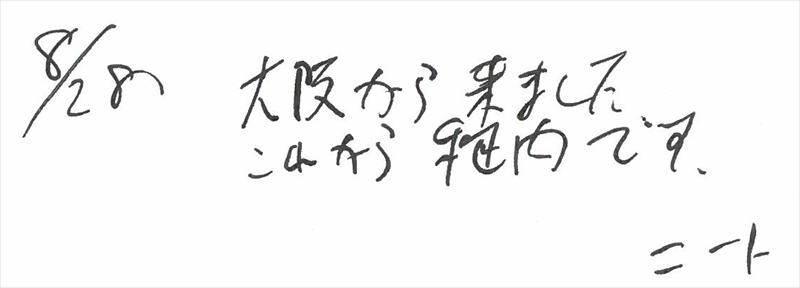 8/28
大阪から来ました
これから稚内です。
ニート